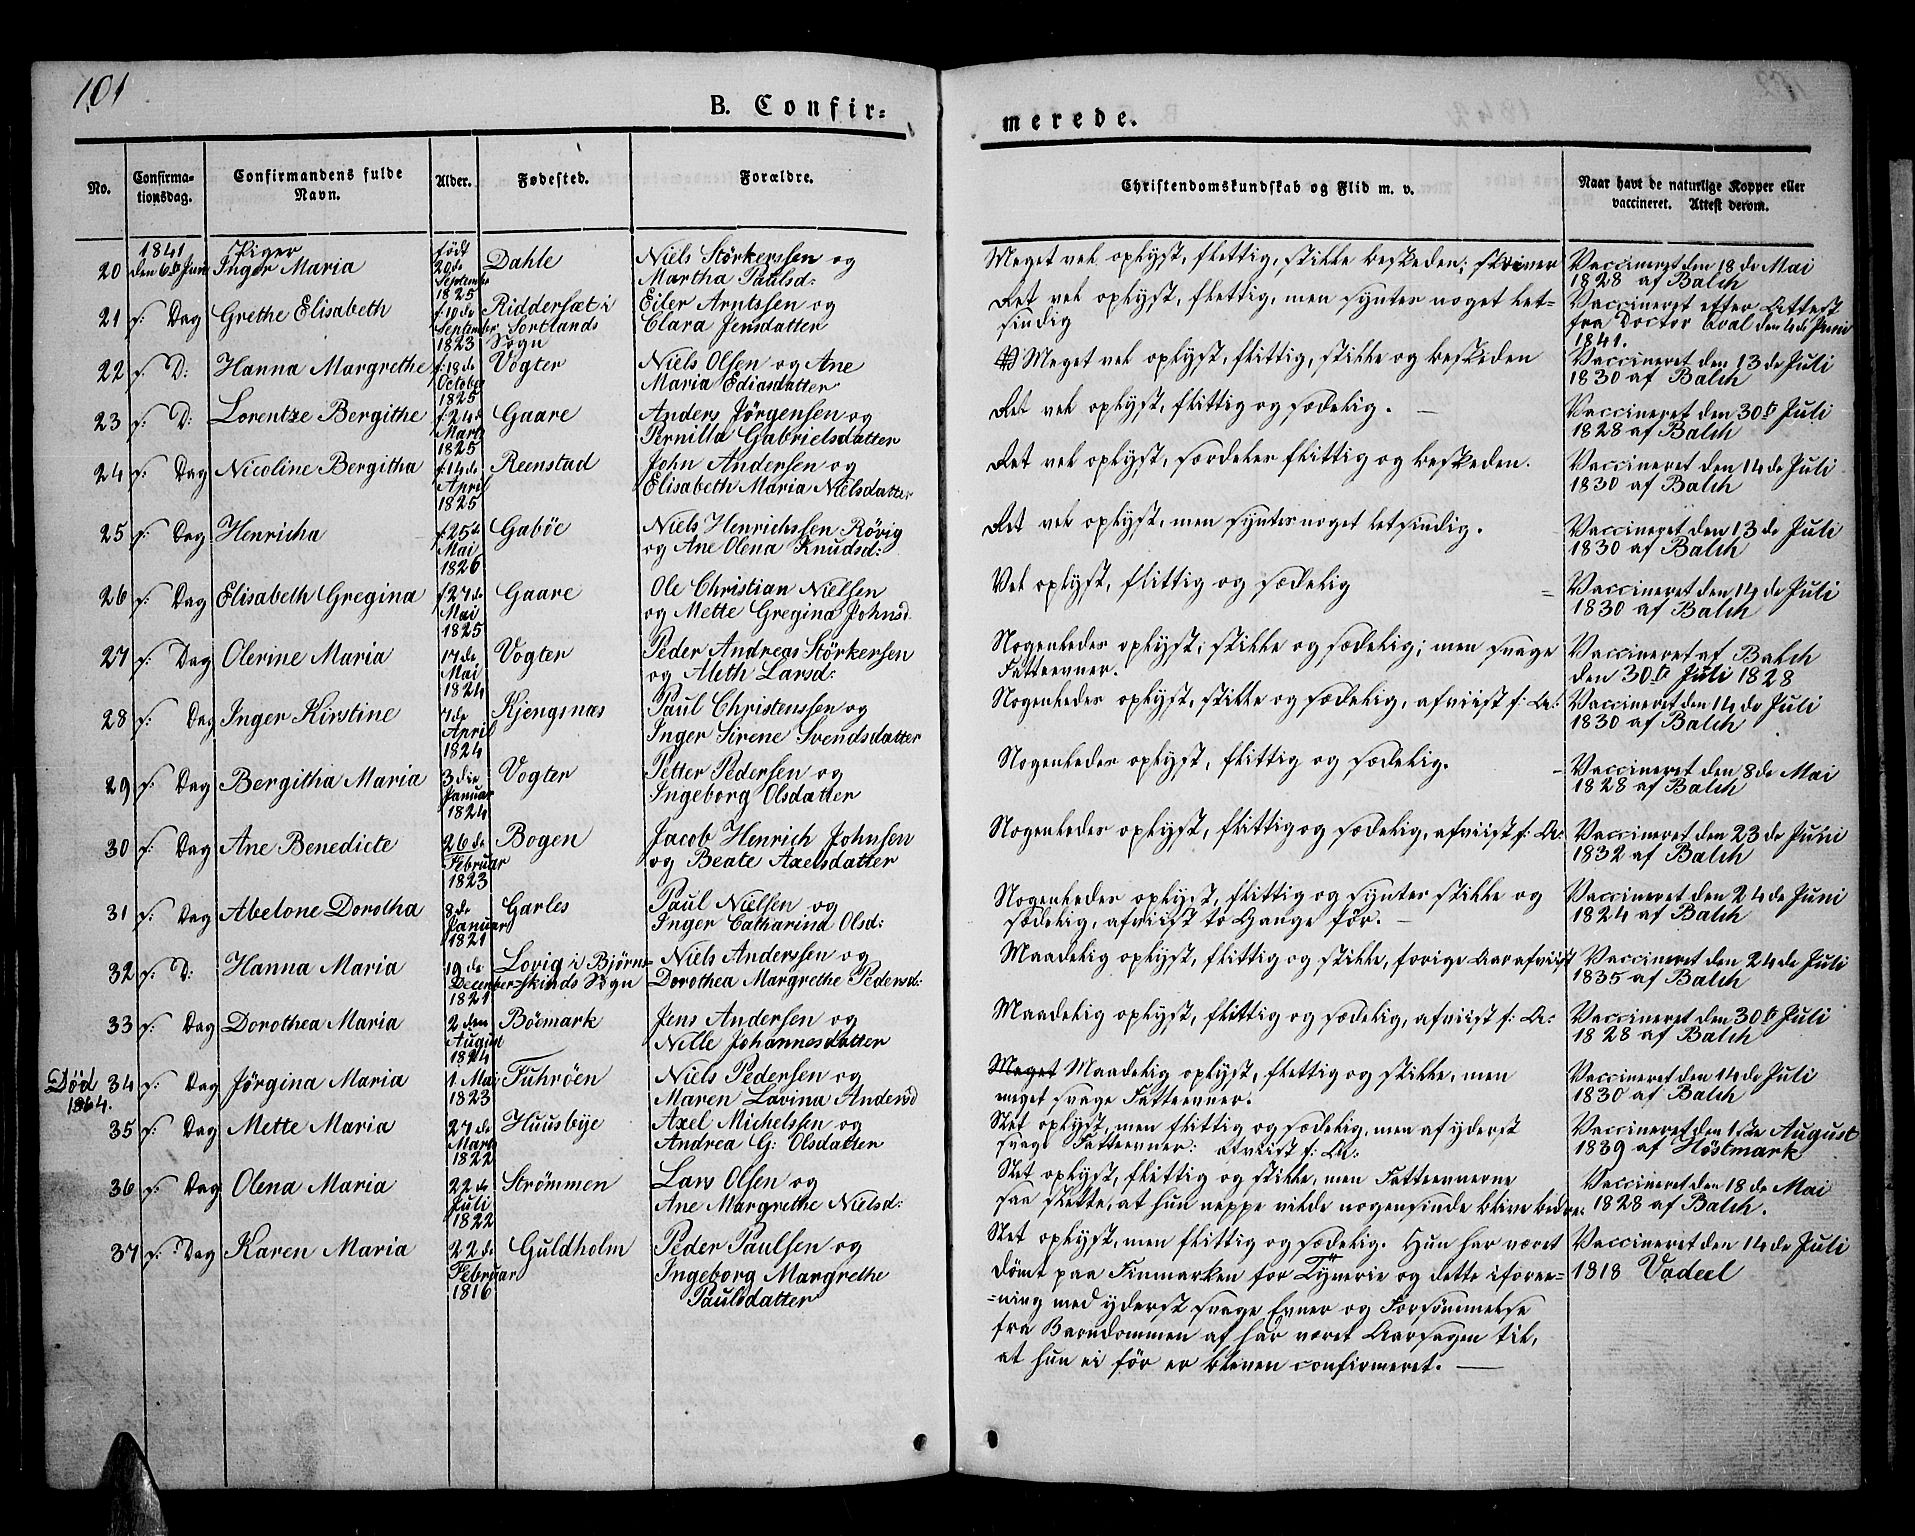 101
B. Confir=
merede.
No.
Confirma-
tionsdag.
Confirmandens fulde
Navn.
Alder.
Fødested.
Forældre.
Christendomskundskab og Flid m. v.
Naar havt de naturlige Kopper eller
vaccineret. Attest derom.
1841 Piger født
20 den 6te Juni Inger Maria 20de September 1825 Dahle Niels Störkerssen og
Martha Paulsd:
Meget vel oplyst, flittig, stille beskeden; skriver
Vaccineret den 18de Mai
1828 af Balch
21 s: Dag Grethe Elisabeth f: 19de September 1823 Riddersæt i
Sortlands
Sogn
Eiler Arntssen og
Clara Jensdatter
Ret vel oplyst, flittig, men syntes noget let=
sindig
Vaccineret efter Attest
fra Doctor Eval den 4de Juni
1841.
22 s: D: Hanna Margrethe f: 18de October 1825 Vogter Niels Olsen og Ane
Maria Ediasdatter
Meget vel oplyst, flittig, stille og beskeden
Vaccineret den 13de Juli
1830 af Balch
23 s: D: Lorentze Bergithe f: 24d Marts 1825 Gaare Anders Jörgensen og
Pernilla Gabrielsdatter
Ret vel oplyst, flittig og sædelig. —
Vaccineret den 30te Juli
1828 af Balch
24 s: Dag Nicoline Bergitha f: 14de April 1825 Reenstad John Andersen og
Elisabeth Maria Nielsdatter
Ret vel oplyst, særdeles flittig og beskeden.
Vaccineret den 14de Juli
1830 af Balch
25 s: Dag Henricha f: 25d Mai 1826 Gaböe Niels Henrichssen Rövig
og Ane Olena Knudsd:
Ret vel oplyst, men syntes noget letsindig.
Vaccineret den 13de Juli
1830 af Balch
26 s: Dag Elisabeth Gregina f 27de Mai 1825 Gaare Ole Christian Nielsen
og Mette Gregina Johnsd.
Vel oplyst, flittig og sædelig
Vaccineret den 14de Juli
1830 af Balch
27 s: Dag Olerine Maria 17de Mai 1824 Vogter Peder Andreas Störkersen
og Aleth Larsd:
Nogenledes oplyst; stille og sædelig; men svage
Fatteevner.
Vaccineret af Balch
den 30te Juli 1828
28 s: Dag Inger Kirstine 7de April 1824 Kjengsnas Paul Christenssen og
Inger Sirene Svendsdatter
Nogenledes oplyst, stille og sædelig, afviist f: A:
Vaccineret den 14de Juli
1830 af Balch
29 s: Dag Bergitha Maria 3die Januar 1824 Vogter Petter Pedersen og
Ingeborg Olsdatter
Nogenledes oplyst, flittig og sædelig.
Vaccineret den 8de Mai
1828 af Balch
30 s: Dag Ane Benedicte 26de Februar 1823 Bogen Jacob Henrich Johnsen
og Beate Axelsdatter
Nogenledes oplyst, flittig og sædelig, afviist f: A:
Vaccineret den 23de Juni
1832 af Balch
31 s: Dag Abelone Dorotha 8de Januar 1821 Garles Paul Nielsen og
Inger Catharina Olsd:
Nogenledes oplyst, flittig og syntes stille og
sædelig, afviist to Gange før. —
Vaccineret den 24de Juni
1824 af Balch
32 s: D: Hanna Maria 19de December 1821 Lovig i Bjørn=
skinds Sogn
Niels Anderssen og
Dorothea Margrethe Pedersd:
Maadelig oplyst, flittig og stille, forige Aar afviist
Vaccineret den 24de Juli
1835 af Balch
33 s: Dag Dorothea Maria 2den August 1824 Böemark Jens Andersen og
Nille Johannesdatter
Maadelig oplyst, flittig og sædelig, afviist f: A:
Vaccineret den 30te Juli
1828 af Balch
Död
1864.
34 s: Dag Jörgina Maria 1 Mai 1823 Fuhröen Niels Pedersen og
Maren Lovina Andersd
Meget Maadelig oplyst, flittig og stille, men
meget svage Fatteevner.
Vaccineret den 14de Juli
1830 af Balch
35 s: Dag Mette Maria 27de Marts 1822 Huusbÿe Axel Michelssen og
Andrea G: Olsdatter
Slet oplyst, men flittig og sædelig, men af yderst
svage Fatteevner: afviist f: A:
Vaccineret den 1ste August
1839 af Höstmark
36 s: Dag Olena Maria 22de Juli 1822 Strömmen Lars Olsen og
Ane Margrethe Nielsd:
Slet oplyst, flittig og stille, men Fatteevnerne
saa slette, at hun neppe vilde nogensinde blive bedre.
Vaccineret den 18de Mai
1828 af Balch.
37 s: Dag Karen Maria 22de Februar 1816 Guldholm Peder Paulsen og
Ingeborg Margrethe
Paulsdatter
Slet oplyst, men flittig og sædelig. Hun har været
dömt paa Finmarken for Tÿverie og dette i foree=
=ning med yderst svage Evner og Forsömmelse
fra Barndommen af har været Aarsagen til,
at hun ei för er bleven confirmeret. —
Vaccineret den 14de Juli
1818 Vadeel